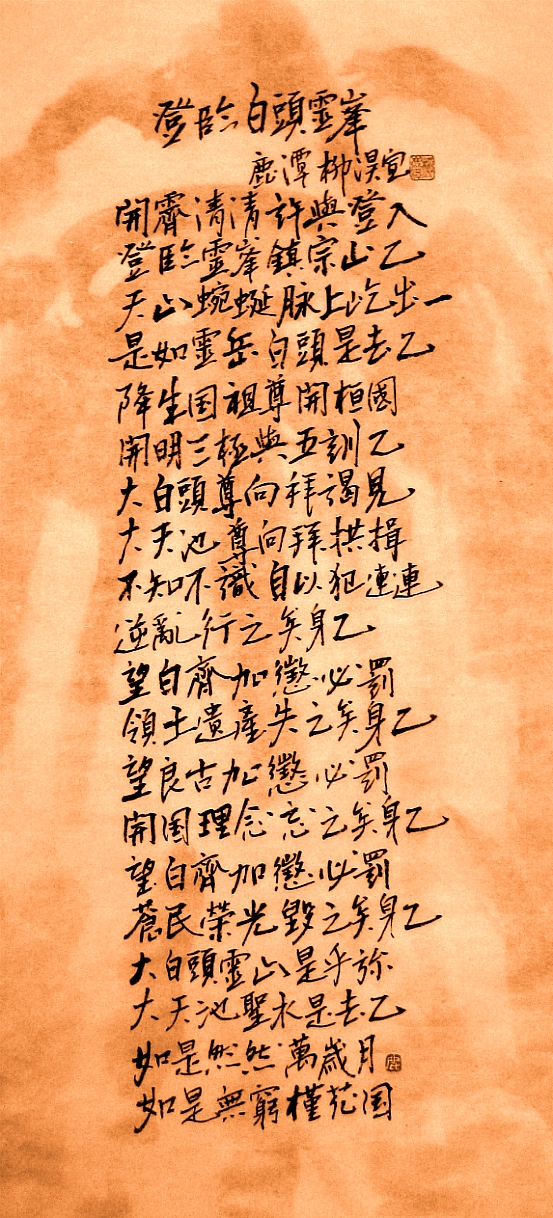 登臨白頭靈峯
鹿潭 柳淏宣
開霽清清許與登入
登臨靈峯鎮宗山乙
天山蜿蜒脉上屹出一
是如靈岳白頭是去乙
降生国祖尊開桓國
開明三極與五訓乙
大白頭尊向拜謁見
大天池尊向拜拱揖
不知不識自以犯逆連
逆亂行之矣身乙
望白齊加懲必罰
領土遺產失之矣身乙
望良古加懲必罰
開国理念忘之矣身乙
望白齊加懲必罰
蒼民榮光毀之矣身乙
大白頭靈山是乎旀
大天池聖水是去乙
如是然然萬歲月
如是無窮槿花国